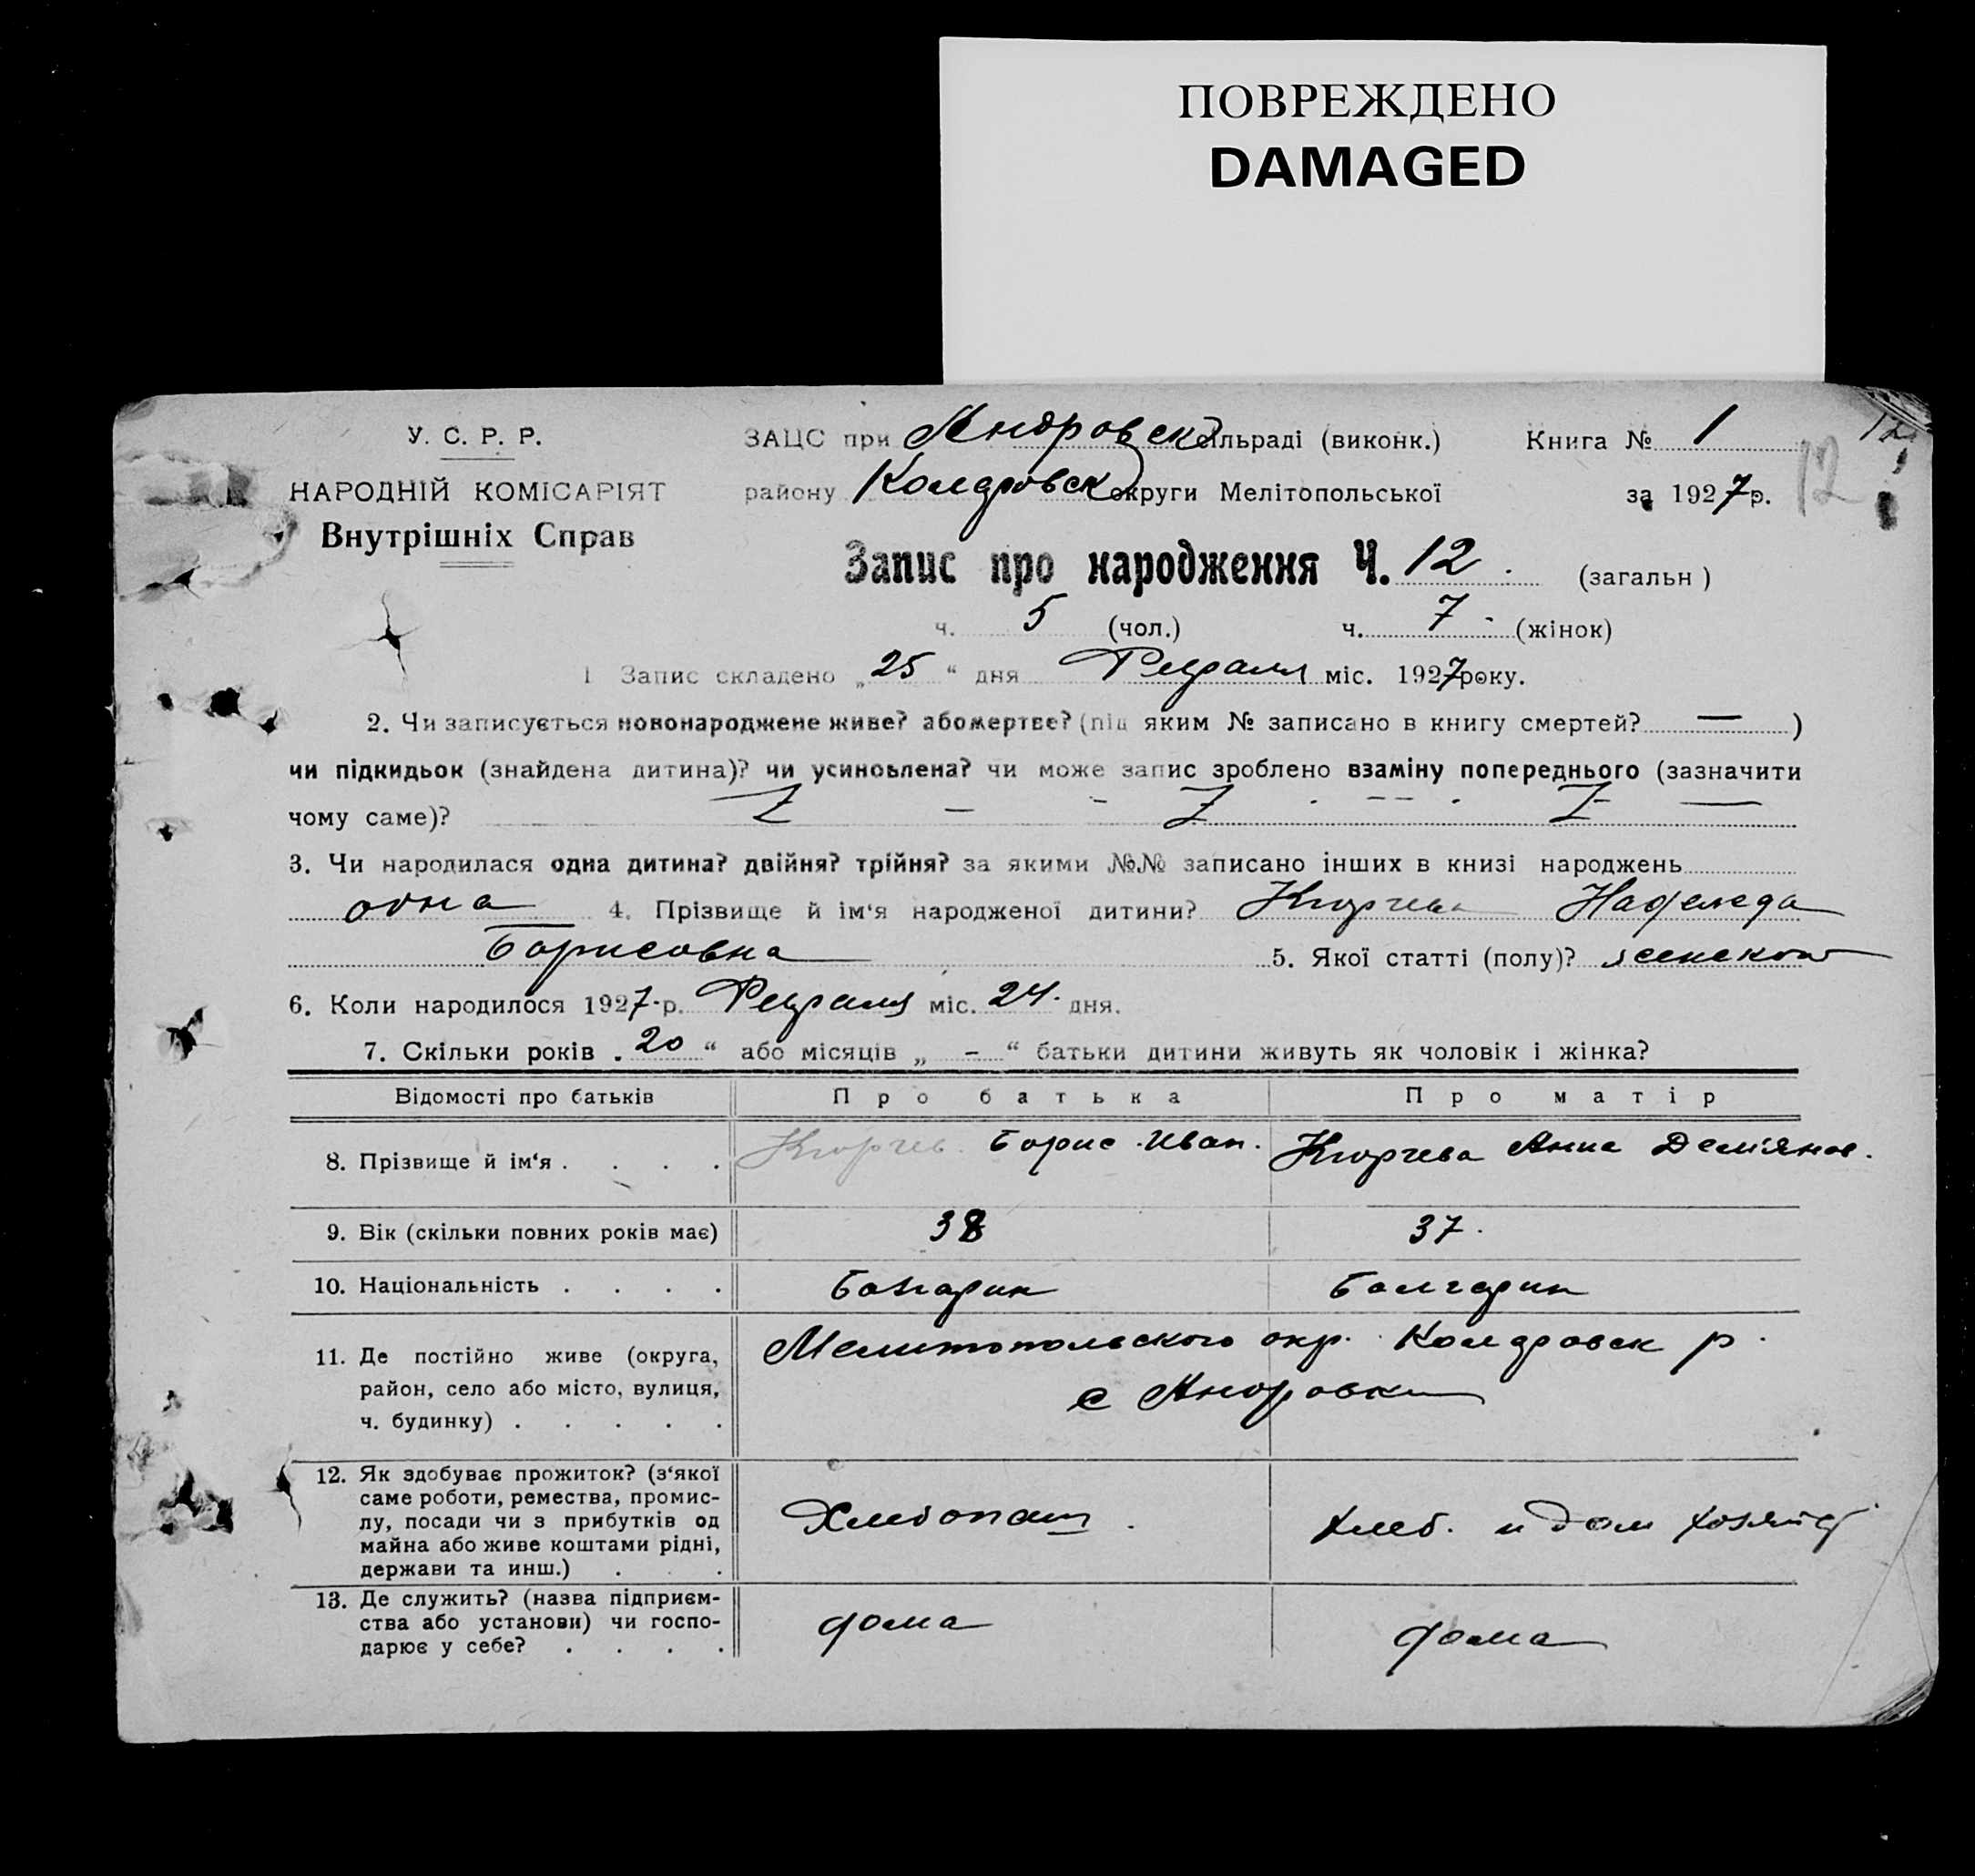 ПОВРЕЖДЕНО
DAMAGED
У. С. Р. Р.
НАРОДНІЙ КОМІСАРІЯТ
Внутрішніх Справ
ЗАЦС при Яндровск. сільраді (виконк.) Книга № 1
району Коларовск округи Мелітопольської за 1927 р.
12
Запис про народження Ч. 12. (загальн)
ч. 5 (чол.) ч. 7 - (жінок)
1 Запис складено „25“ дня Февраля міс. 1927 року.
2. Чи записується новонароджене живе? або мертве? (під яким № записано в книгу смертей? — )
чи підкидьок (знайдена дитина)? чи усиновлена? чи може запис зроблено взаміну попереднього (зазначити
чому саме)?
3. Чи народилася одна дитина? двійня? трійня? за якими №№ записано інших в книзі народжень
одна 4. Прізвище й ім'я народженої дитини? Кюрчева Надежда
Борисовна 5. Якої статті (полу)? женского
6. Коли народилося 1927 р. Февраля міс. 24. дня.
7. Скільки років „20“ або місяців „ - “ батьки дитини живуть як чоловік і жінка?
Відомості про батьків Про батька Про матір
8. Прізвище й ім'я . . . . Кюрчев. Борис Иван. Кюрчева Анна Демянов.
9. Вік (скільки повних років має) 38 37.
10. Національність . . . . Болгарин Болгарин
11. Де постійно живе (округа, Мелитопольского окр. Коларовск р.
район, село або місто, вулиця, с Андровки
ч. будинку) . . . . .
12. Як здобуває прожиток? (з'якої
саме роботи, ремества, промис-
лу, посади чи з прибутків од Хлебопаш. хлеб. и дом хозяйст
майна або живе коштами рідні,
держави та инш.) . . .
13. Де служить? (назва підприєм-
ства або установи) чи госпо- дома дома
дарює у себе? . . . .